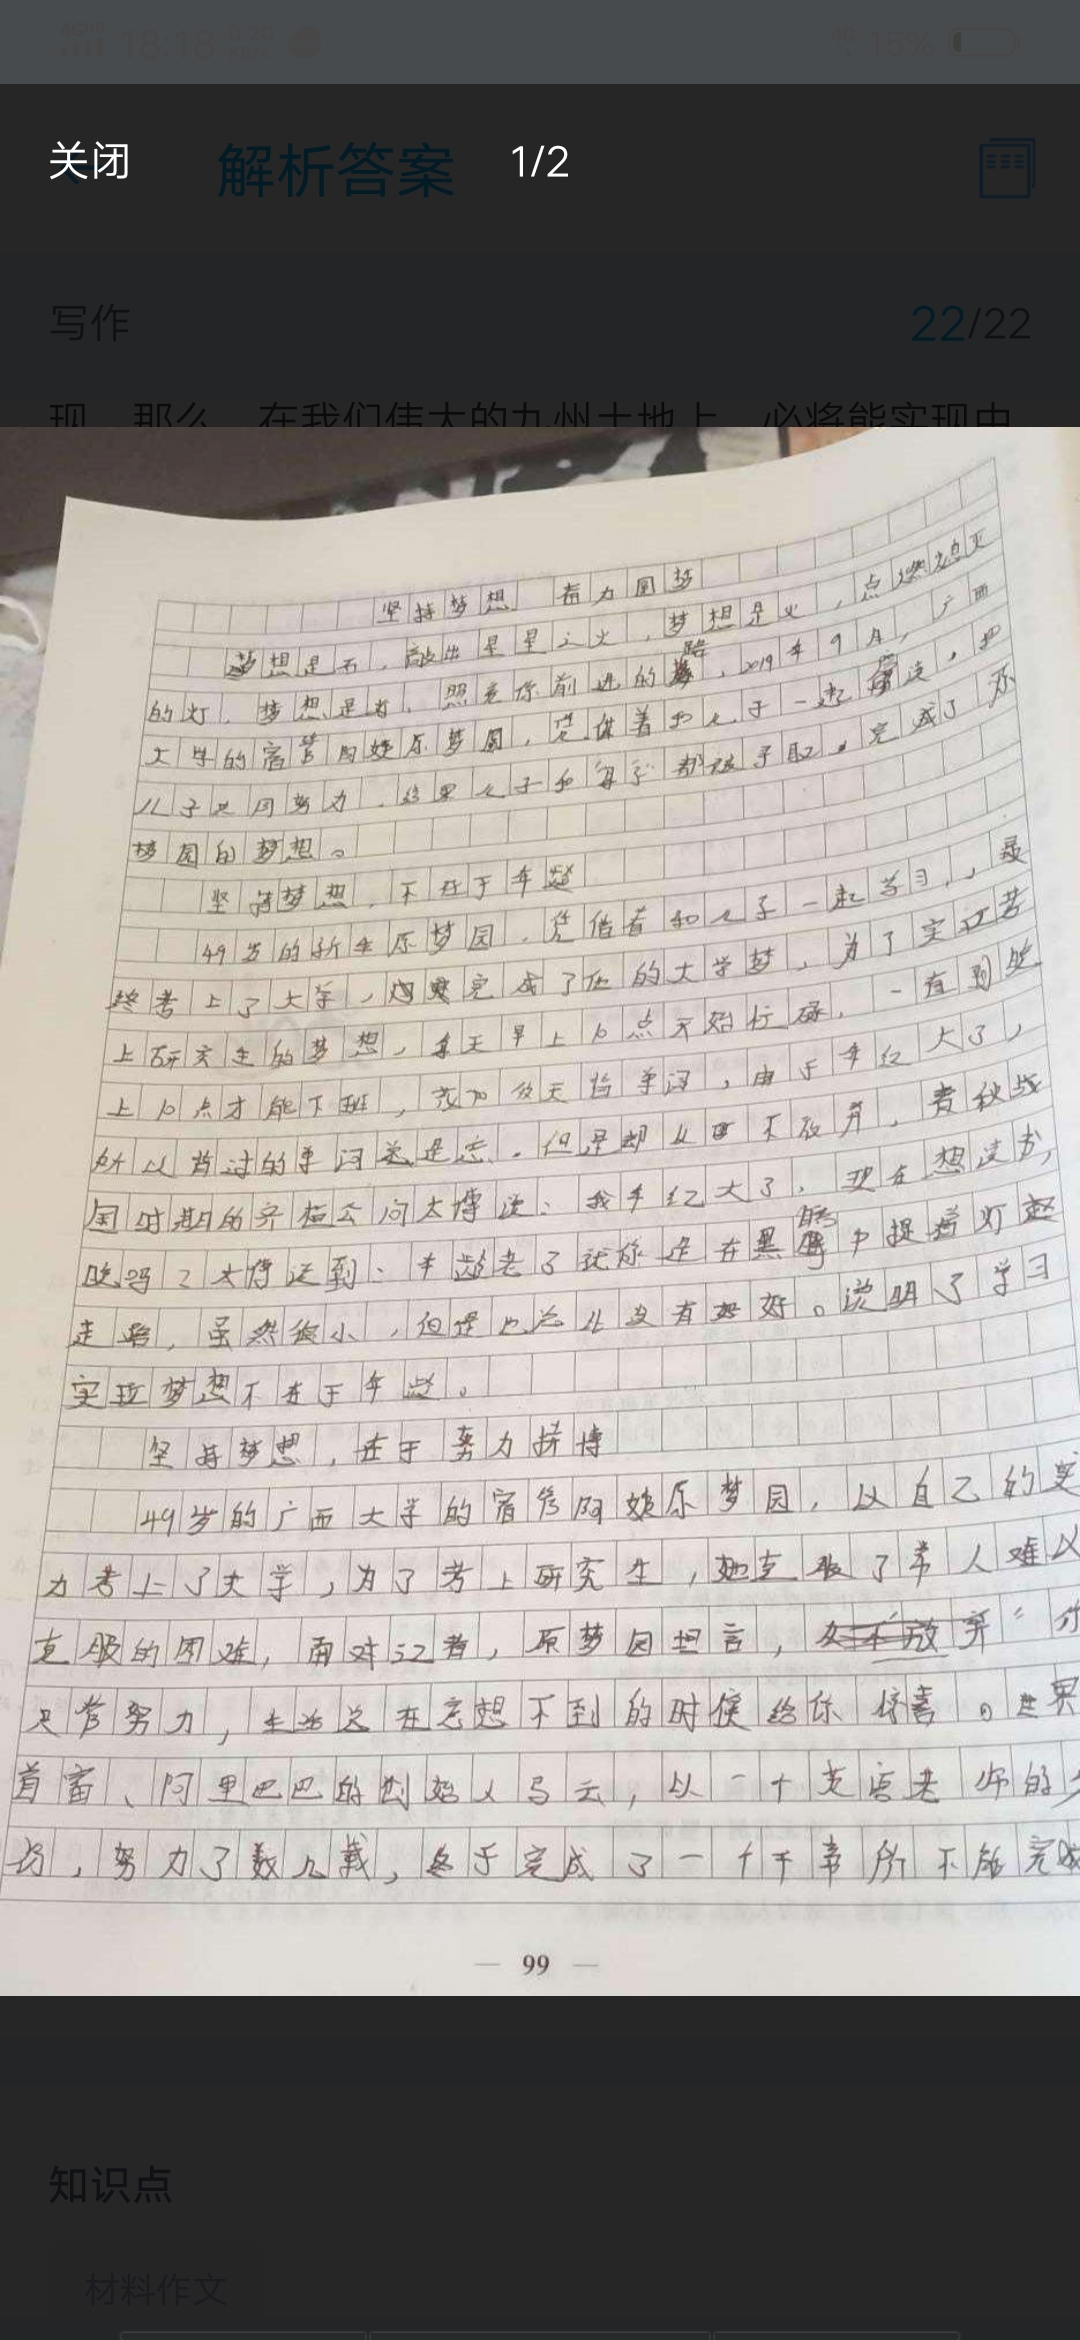 18:18
15%
关闭 解析答案 1/2
写作 22/22
现 那么 在我们伟大的九州土地上 必将能实现中
坚持梦想 着力圆梦
梦想是石，敲出星星之火，梦想是火，点燃熄灭
的灯，梦想是灯，照亮你前进的路，2019年9月，广西
大学的宿管阿姨原梦园，凭借着和儿子一起
儿子共同努力，结果儿子和 都被录取。完成了原
梦园的梦想。
坚持梦想，不在于年龄
49岁的新生原梦园，凭借着和儿子一起学习，最
终考上了大学，完成了她的大学梦，为了实现考
上研究生的梦想，每天早上6点开始忙碌，一直到晚
上10点才能下班，夜以继天背单词，由于年纪大了，
所以背过的单词总是忘，但是却从不放弃，春秋战
国时期的齐桓公问太傅说：我年纪大了，现在想读书，
晚吗？太傅说到：年龄老了就像是在黑暗中提着灯
走路，虽然很小，但是也总比没有好。说明了学习
实现梦想不在于年龄。
坚持梦想，在于努力拼搏
49岁的广西大学的宿管阿姨原梦园，以自己的实
力考上了大学，为了考上研究生，她克服了常人难以
克服的困难，面对记者，原梦园坦言，“你
只管努力，生活总在意想不到的时候给你惊喜。世界
首富、阿里巴巴的创始人马云，以一个英语老师的
努力了数几载，终于完成了一个 所不能完成
— 99 —
知识点
材料作文